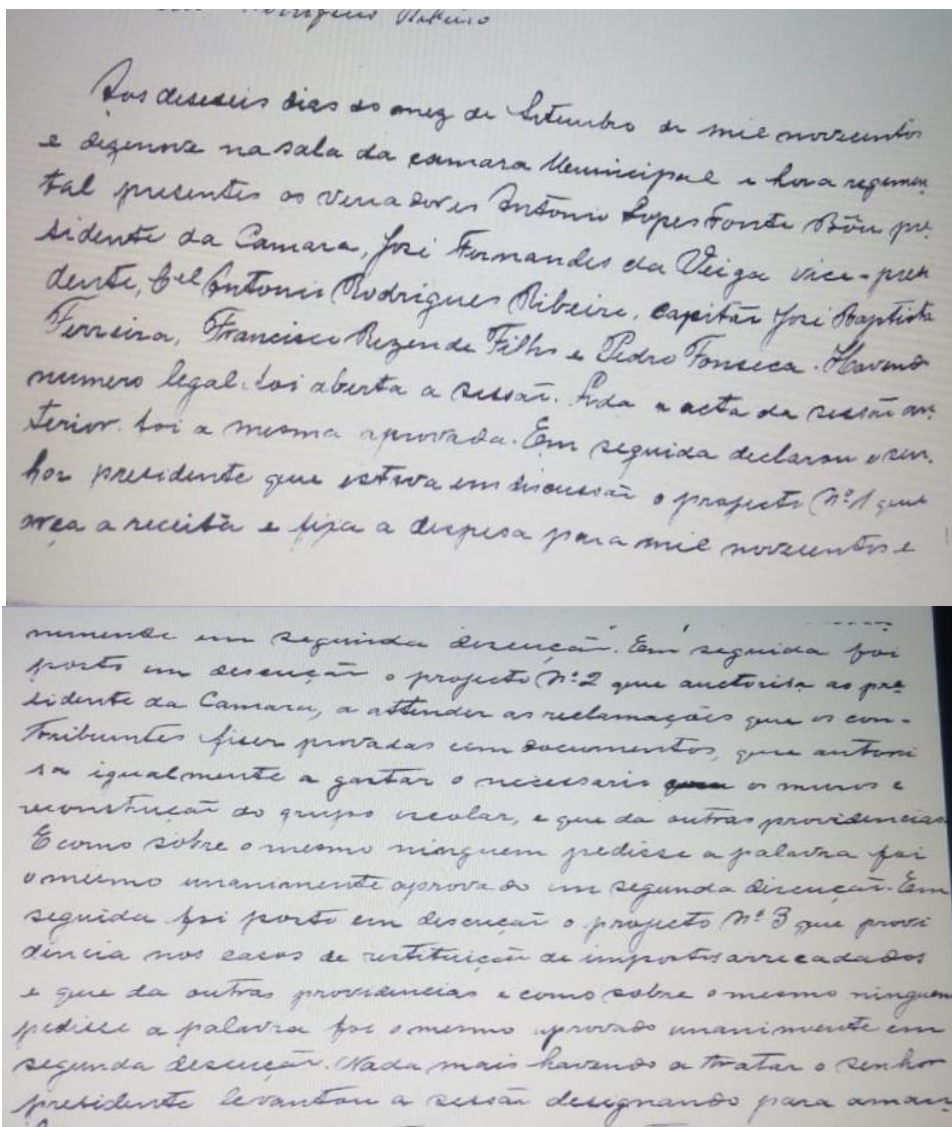 Rodrigues Ribeiro
Aos deseseis dias do mez de Setembro de mil novecentos
e dezenove na sala da camara Municipal e hora regimen
tal presentes os vereadores Antonio Lopes Fonte Bôa pre
sidente da Camara, José Fernandes da Veiga vice-presi
dente, Cel Antonio Rodrigues Ribeiro, capitão José Baptista
Ferreira, Francisco Rezende Filho e Pedro Fonseca. Havendo
numero legal foi aberta a sessão. Lida a acta da sessão an
terior foi a mesma aprovada. Em seguida declarou o sen
hor presidente que estava em discussão o projecto Nº 1 que
orça a receita e fixa a despesa para mil novecentos e
em seguida discução. Em seguida foi
posto em descução o projecto Nº 2 que auctorisa ao pre
sidente da Camara, a attender as reclamações que os con-
tribuintes fiser provadas com documentos, que autori
sa igualmente a gastar o necessario os muros e
reconstrução do grupo escolar, e que da outras providencias.
E como sobre o mesmo ninguem pedisse a palavra foi
o mesmo unanimente aprovado em segunda discução. Em
seguida foi posto em descução o projecto Nº 3 que provi
dencia nos casos de restituição de impostos arrecadados
e que da outras providencias e como sobre o mesmo ninguem
pedisse a palavra foi o mesmo aprovado unanimente em
segunda descução. Nada mais havendo a tratar o senhor
presidente levantou a sessão designando para